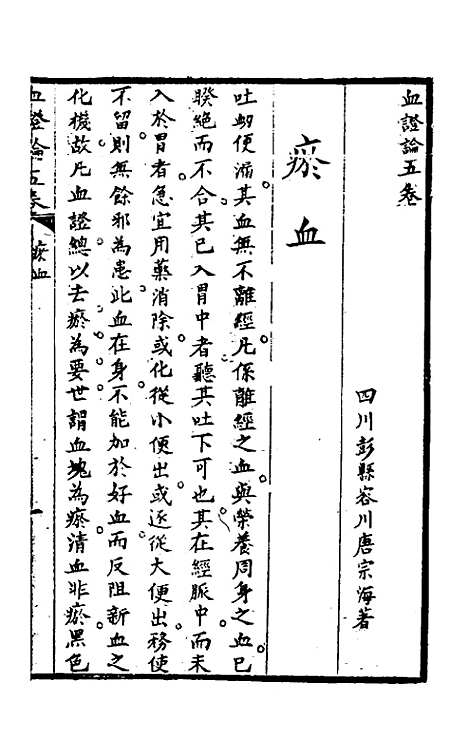 血證論五卷
四川彭縣容川唐宗海著
瘀血
吐衄便漏其血無不離經凡係離經之血與榮養周身之血已
睽絶而不合其已入胃中者聽其吐下可也其在經脈中而未
入於胃者急宜用藥消除或化從小便出或逐從大便出務使
不留則無餘邪為患此血在身不能加於好血而反阻新血之
化機故凡血證總以去瘀為要世謂血塊為瘀清血非瘀黑色
血證論五卷 瘀血 一